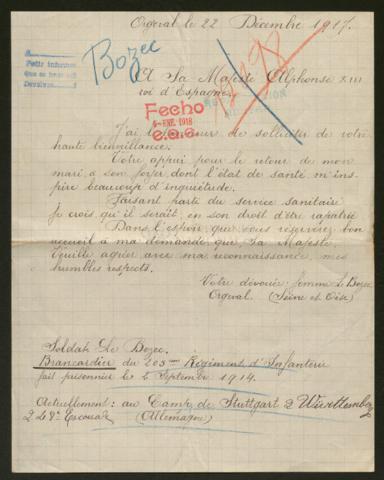 Orgeval le 22 Décembre 1917.
Bozec
A Sa Majesté Alphonse XIII
roi d'Espagne.
Fecho
4-ENE. 1918
J'ai l'honneur de solliciter de votre
haute bienveillance.
Votre appui pour le retour de mon
mari, à son foyer dont l'état de santé m'ins-
pire beaucoup d'inquiétude.
Faisant partie du service sanitaire
je crois qu'il serait en son droit d'être rapatrié
Dans l'espoir que vous réserverez bon
accueil à ma demande que Sa Majesté
Veuille agréer avec ma reconnaissance, mes
humbles respects.
Votre dévouée: femme Le Bozec
Orgeval. (Seine et Oise)
Soldat Le Bozec.
Brancardier du 205ème Régiment d'Infanterie
fait prisonnier le 2 Septembre 1914.
Actuellement: au Camp de Stuttgart 2 Wurttemberg
(Allemagne)